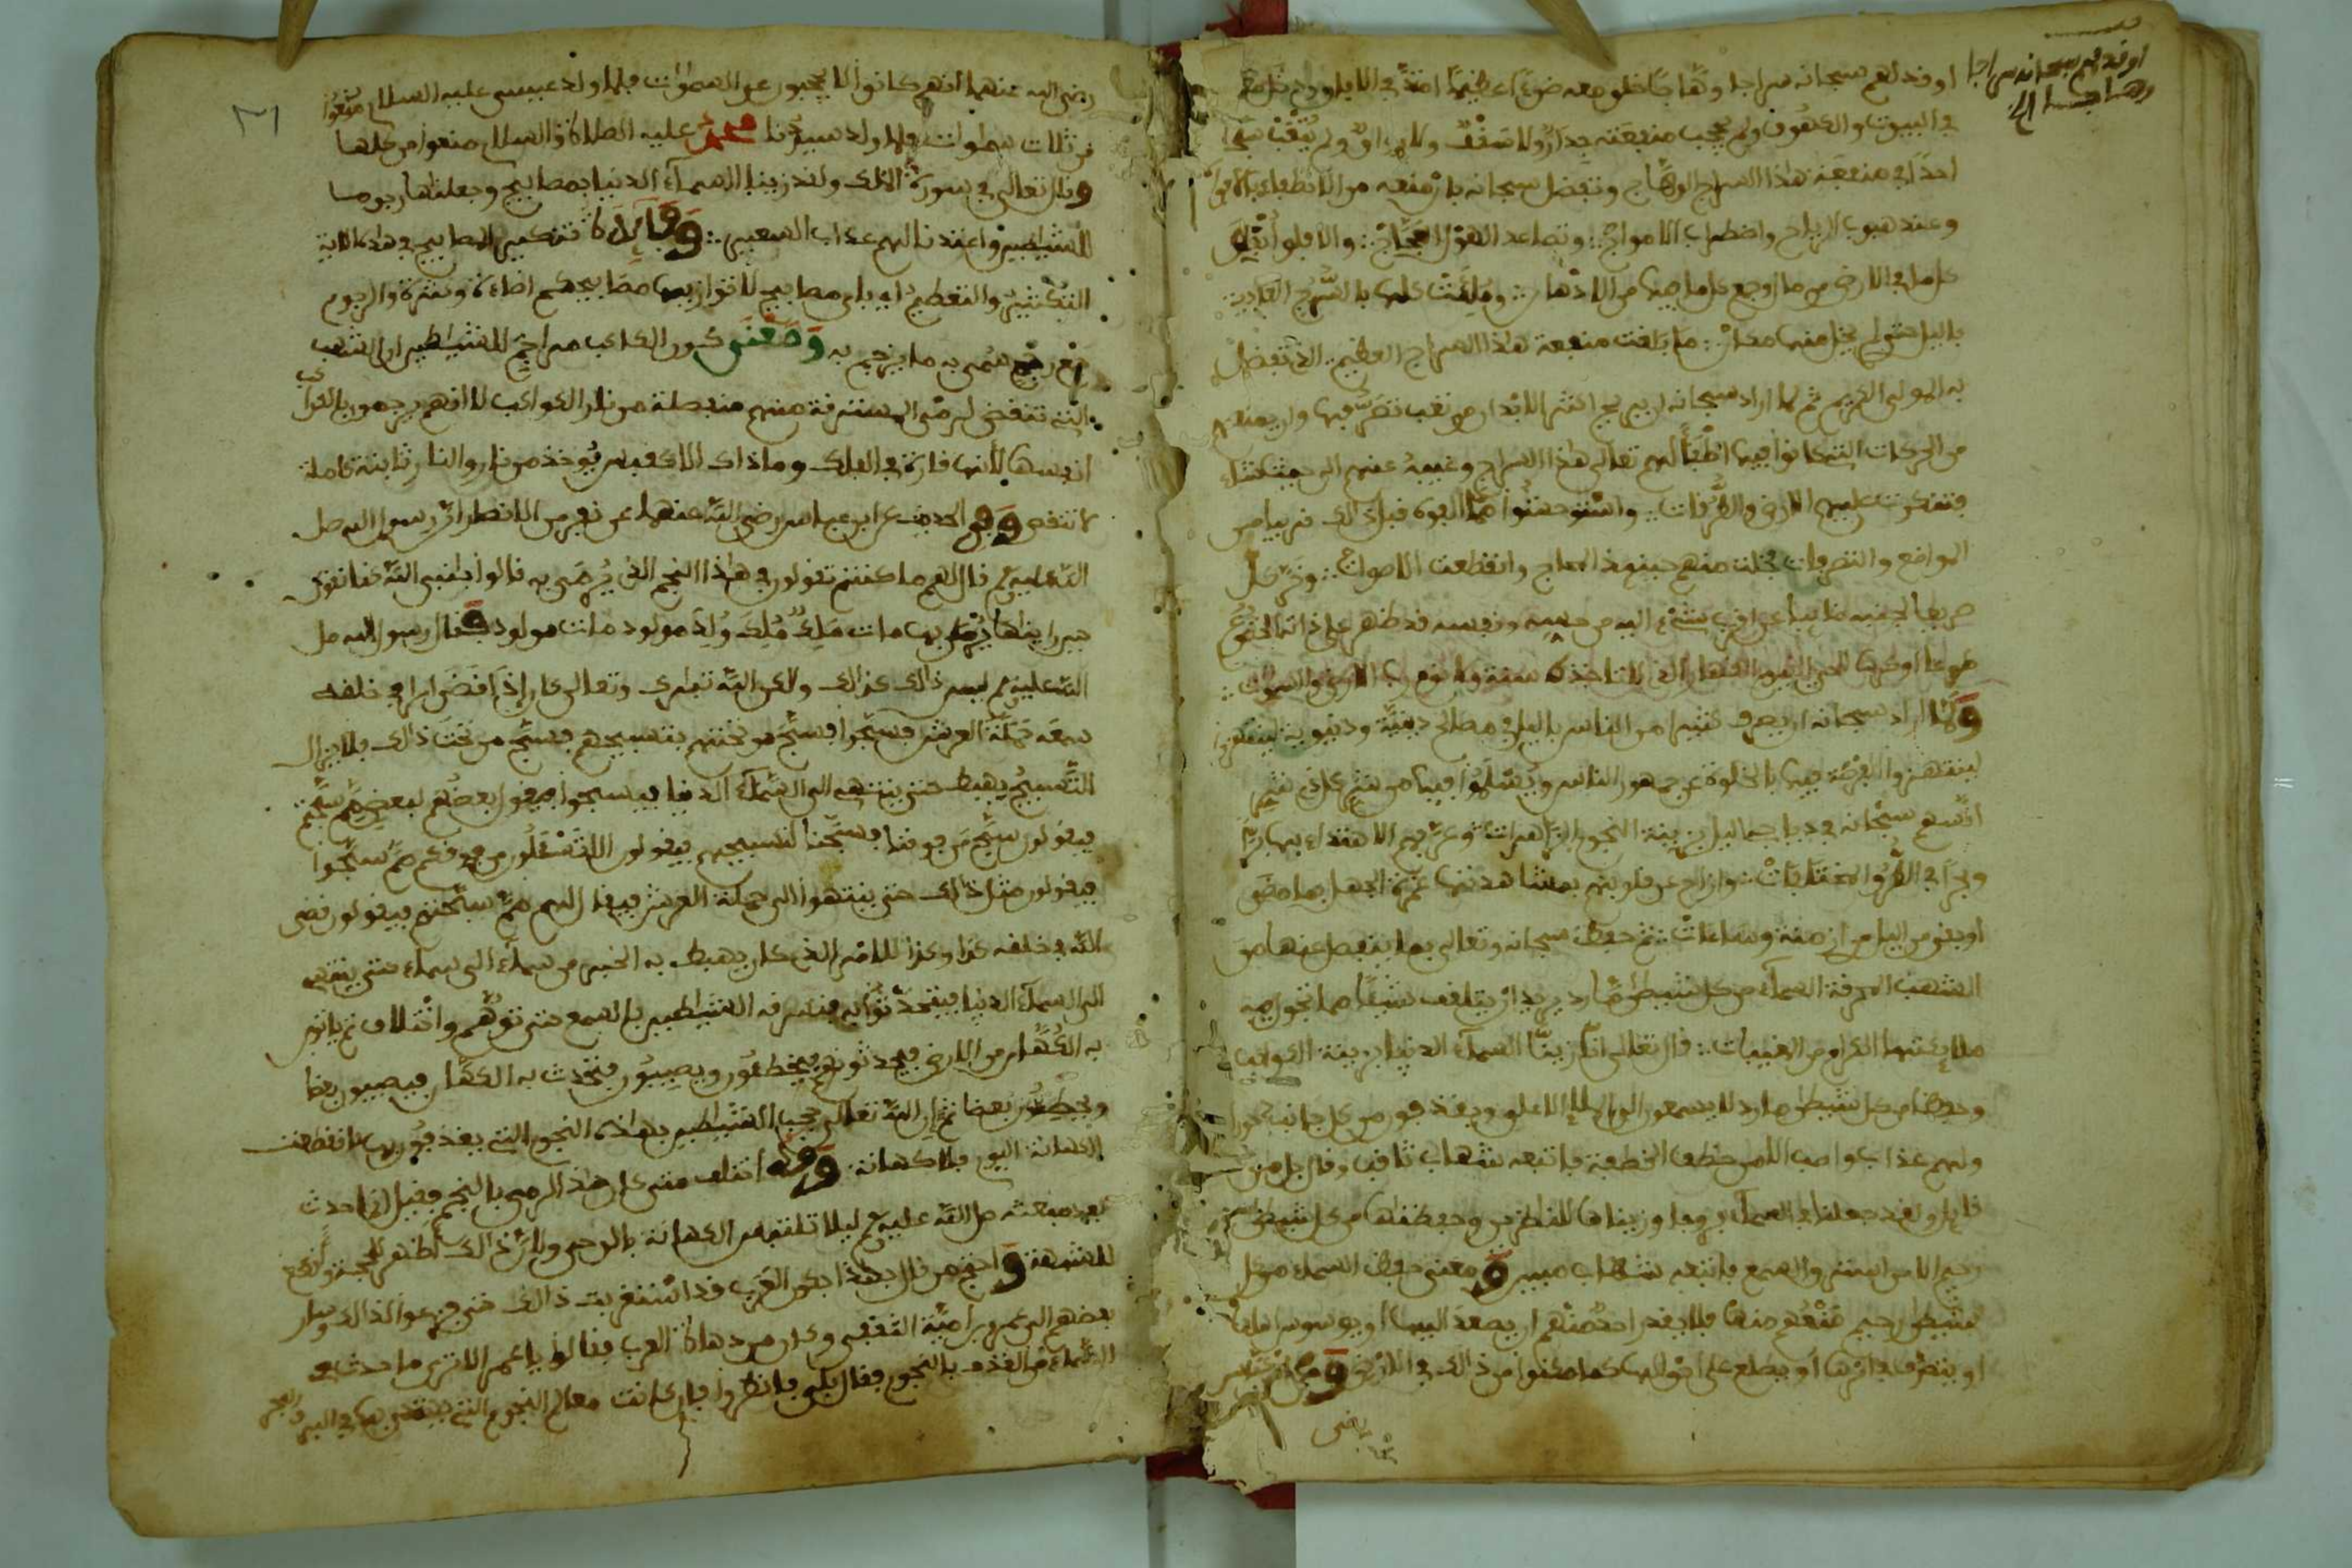 اوقد لهم سبحانه سراجا وهاجا خلق معه ضوءا عظيما امتد في الافاق ودخل
في البيوت والكهوف ولم يحجب منفعته جدار ولا سقف ولا
احدا في منفعة هذا السراج الوهاج وتفضل سبحانه بان منعه من الانطفاء
وعند هبوب الرياح واضطراب الامواج وتصاعد
كل ما في الارض من
باليل حتى لم يخل منها مكان ما بلغت منفعة هذا السراج العظيم الذي تفضل
به المولى الكريم ثم لما اراد سبحانه ان يريح اكثر الابدان من تعب تصرفها وان يمنعهم
من الحركات التي كانوا فيها اطفأ لهم تعالى هذا السراج وغيبه عنهم الى حيث شاء
فتنكرت عليهم الارض والطرقات واستوحشوا مما الفوه قبل ذلك قريبا من
المواضع والتصرفات منهم حينئذ وانقطعت الاصوات وخر كل
صريعا لجنبه غائبا عن اقرب شيء اليه من حسه ونفسه قد ظهر على ذاته الخضوع
طوعا او كرها للحي القيوم القهار الذي لا تاخذه سنة ولا نوم رب الارض والسموات
ولما اراد سبحانه ان يصرف كثيرا من الناس باليل في مصالح دينية ودنيوية
لينتهزوا الفرصة فيها بالخلوة عن جمهور الناس ويسلموا فيها من شر كل ذي شر
سبحانه في دياجي اليل بزينة النجوم الزاهرات وعرفهم الاهتداء بها برا
وبحرا في الطرق المختلفات وازاح عن قلوبهم بمشاهدتها غمة الجهل بما مضى
او بقي من اليل من ازمنة وساعات ثم حفظ سبحانه وتعالى بما ينفصل عنها من
الشهب المحرقة السماء من كل شيطان مارد يريد ان يتلقف شيئا مما تحوا به
ملائكتها الكرام من المغيبات قال تعالى انا زينا السماء الدنيا بزينة الكواكب
وحفظا من كل شيطان مارد لا يسمعون الى الملإ الاعلى ويقذفون من كل جانب دحورا
ولهم عذاب واصب الا من خطف الخطفة فاتبعه شهاب ثاقب وقال جل من
قايل ولقد جعلنا في السماء بروجا وزيناها للنظرين وحفظنها من كل شيطن
رجيم الا من استرق السمع فاتبعه شهاب مبين ومعنى حفظ السماء من كل
شيطان رجيم منعهم منها فلا يقدر احد منهم ان يصعد اليها او يوسوس اهلها
او يتصرف في امرها او يطلع على احوالها كما مكنوا من ذلك في الارض وعن ابن عباس
رضي
اوقد لهم سبحانه سراجا
رضي الله عنهما انهم كانوا لا يحجبون عن السموات فلما ولد عيسى عليه السلام منعوا
من ثلاث سموات فلما ولد سيدنا محمد عليه الصلاة والسلام منعوا من كلها
وقال تعالى في سورة الملك ولقد زينا السماء الدنيا بمصابيح وجعلنها رجوما
للشيطين واعتدنا لهم عذاب السعير وفايدة تنكير المصابيح في هذه الاية
التكثير والتعظيم اي باي مصابيح لا توازيها مصابيحكم اضاءة ونشرة والرجوم
جمع رجم سمي به ما يرجم به ومعنى كون الكواكب مراجم للشيطين ان الشهب
التي تنقض لرمي المسترقة منهم منفصلة من نار الكواكب لا انهم يرجمون بالكواكب
انفسها لانها قارة في الفلك وما ذاك الا كقبس يوخذ من نار والنار ثابتة كاملة
لا تنقص وفي الحديث عن ابن عباس رضي الله عنهما عن نفر من الانصار ان رسول الله صلى
الله عليه وسلم قال لهم ما كنتم تقولون في هذا النجم الذي يرمى به قالوا يا نبي الله كنا نقول
حين رايناها يرمى بها مات ملك ملك ولد مولود مات مولود فقال رسول الله صلى
الله عليه وسلم ليس ذلك كذلك ولكن الله تبارك وتعالى كان اذا قضى امرا في خلقه
سمعه حملة العرش فسبحوا فسبح من تحتهم بتسبيحهم فسبح من تحت ذلك فلا يزال
التسبيح يهبط حتى ينتهي الى السماء الدنيا فيسبحوا فيقول بعضهم لبعض مم سبحتم
فيقولون سبح من فوقنا فسبحنا لتسبيحهم فيقولون الا تسئلون من فوقكم مم سبحوا
فيقولون مثل ذلك حتى ينتهوا الى حملة العرش فيقال لهم مم سبحتم فيقولون قضى
الله في خلقه كذا وكذا للامر الذي كان يهبط به الخبر من سماء الى سماء حتى ينتهي
الى السماء الدنيا فيتحدثوا به فتسترقه الشيطين بالسمع حتى توهم واختلاف ثم ياتون
به الكهان من الارض فيحدثونهم فيخطئون ويصيبون فيتحدث به الكهان فيصيبون بعضا
ويخطئون بعضا ثم ان الله تعالى حجب الشيطين بهذه النجوم التي يقذفون بها فانقطعت
الكهانة اليوم فلا كهانة وقد اختلف متى كان هذا الرمي بالنجم فقيل انه احدث
بعد مبعثه صلى الله عليه وسلم ليلا تلتبس الكهانة بالوحي وليكون ذلك اظهر للحجة واقطع
للشبهة واحتج من قال بهذا بكون العرب قد استغربت ذلك حتى فزعوا لذلك وسار
بعضهم الى عمرو بن امية الثقفي وكان من دهاة العرب فقالوا يا عمر الا ترى ما حدث في
السماء من القذف بالنجوم فقال بلى فانظروا فان كانت معالم النجوم التي يهتدى بها في البر والبحر